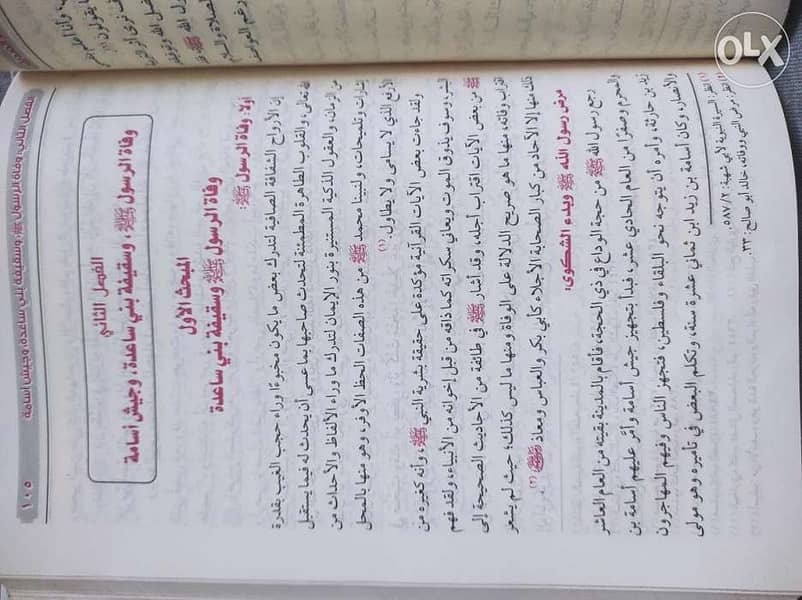 الفصل الثاني: وفاة الرسول ﷺ، وسقيفة بني ساعدة، وجيش أسامة
١٠٥
الفصل الثاني
وفاة الرسول ﷺ، وسقيفة بني ساعدة، وجيش أسامة
المبحث الأول
وفاة الرسول ﷺ وسقيفة بني ساعدة
أولا: وفاة الرسول ﷺ:
إن الأرواح الشفافة الصافية لتدرك بعض ما يكون مخبوءًا وراء حجب الغيب بقدرة
الله تعالى، والقلوب الطاهرة المطمئنة لتحدث صاحبها بما عسى أن يحدث له فيما يستقبل
من الزمان، والعقول الذكية المستنيرة بنور الإيمان لتدرك ما وراء الألفاظ والأحداث من
إشارات وتلميحات، ولنبينا محمد ﷺ من هذه الصفات الحظ الأوفر، وهو منها بالمحل
الأرفع الذي لا يسامى ولا يطاول. (١)
ولقد جاءت بعض الآيات القرآنية مؤكدة على حقيقة بشرية النبي ﷺ، وأنه كغيره من
البشر وسوف يذوق الموت ويعاني سكراته كما ذاقه من قبل إخوانه من الأنبياء، ولقد فهم
ﷺ من بعض الآيات اقتراب أجله، وقد أشار ﷺ في طائفة من الأحاديث الصحيحة إلى
اقتراب وفاته، منها ما هو صريح الدلالة على الوفاة ومنها ما ليس كذلك؛ حيث لم يشعر
ذلك منها إلا الآحاد من كبار الصحابة الأجلاء كأبي بكر والعباس ومعاذ (٢)
مرض رسول الله ﷺ وبدء الشكوى:
رجع رسول الله ﷺ من حجة الوداع في ذي الحجة، فأقام بالمدينة بقيته من العام العاشر
والمحرم وصفرًا من العام الحادي عشر، فبدأ بتجهيز جيش أسامة وأمّر عليهم أسامة بن
زيد بن حارثة، وأمره أن يتوجه نحو البلقاء وفلسطين، فتجهز الناس وفيهم المهاجرون
والأنصار، وكان أسامة بن زيد ابن ثماني عشرة سنة، وتكلم البعض في تأميره وهو مولى
(١) انظر: السيرة النبوية لأبي شهبة: ٢/ ٥٨٧.
(٢) انظر: مرض النبي ووفاته، خالد أبو صالح، ٣٣.
OLX